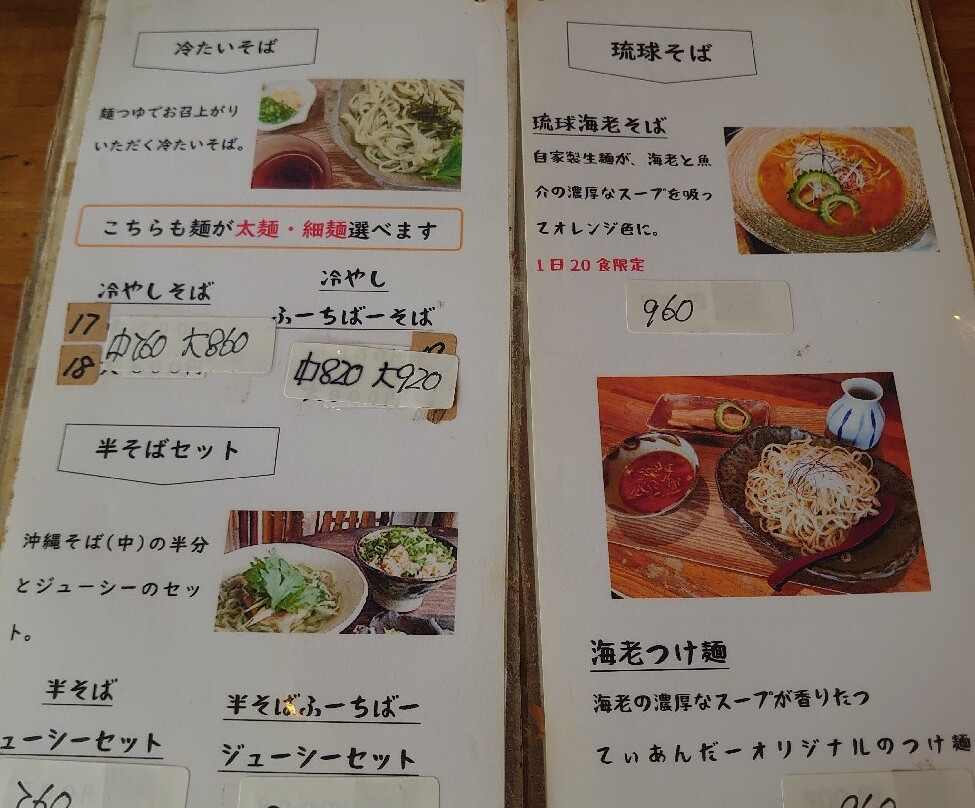 冷たいそば
麺つゆでお召上がり
いただく冷たいそば。
こちらも麺が太麺・細麺選べます
冷やしそば
17
18
中760 大860
冷やし
ふーちばーそば
中820 大920
半そばセット
沖縄そば(中)の半分
とジューシーのセッ
ト。
半そば
ューシーセット
760
半そばふーちばー
ジューシーセット
琉球そば
琉球海老そば
自家製生麺が、海老と魚
介の濃厚なスープを吸っ
てオレンジ色に。
1日20食限定
960
海老つけ麺
海老の濃厚なスープが香りたつ
てぃあんだーオリジナルのつけ麺
960